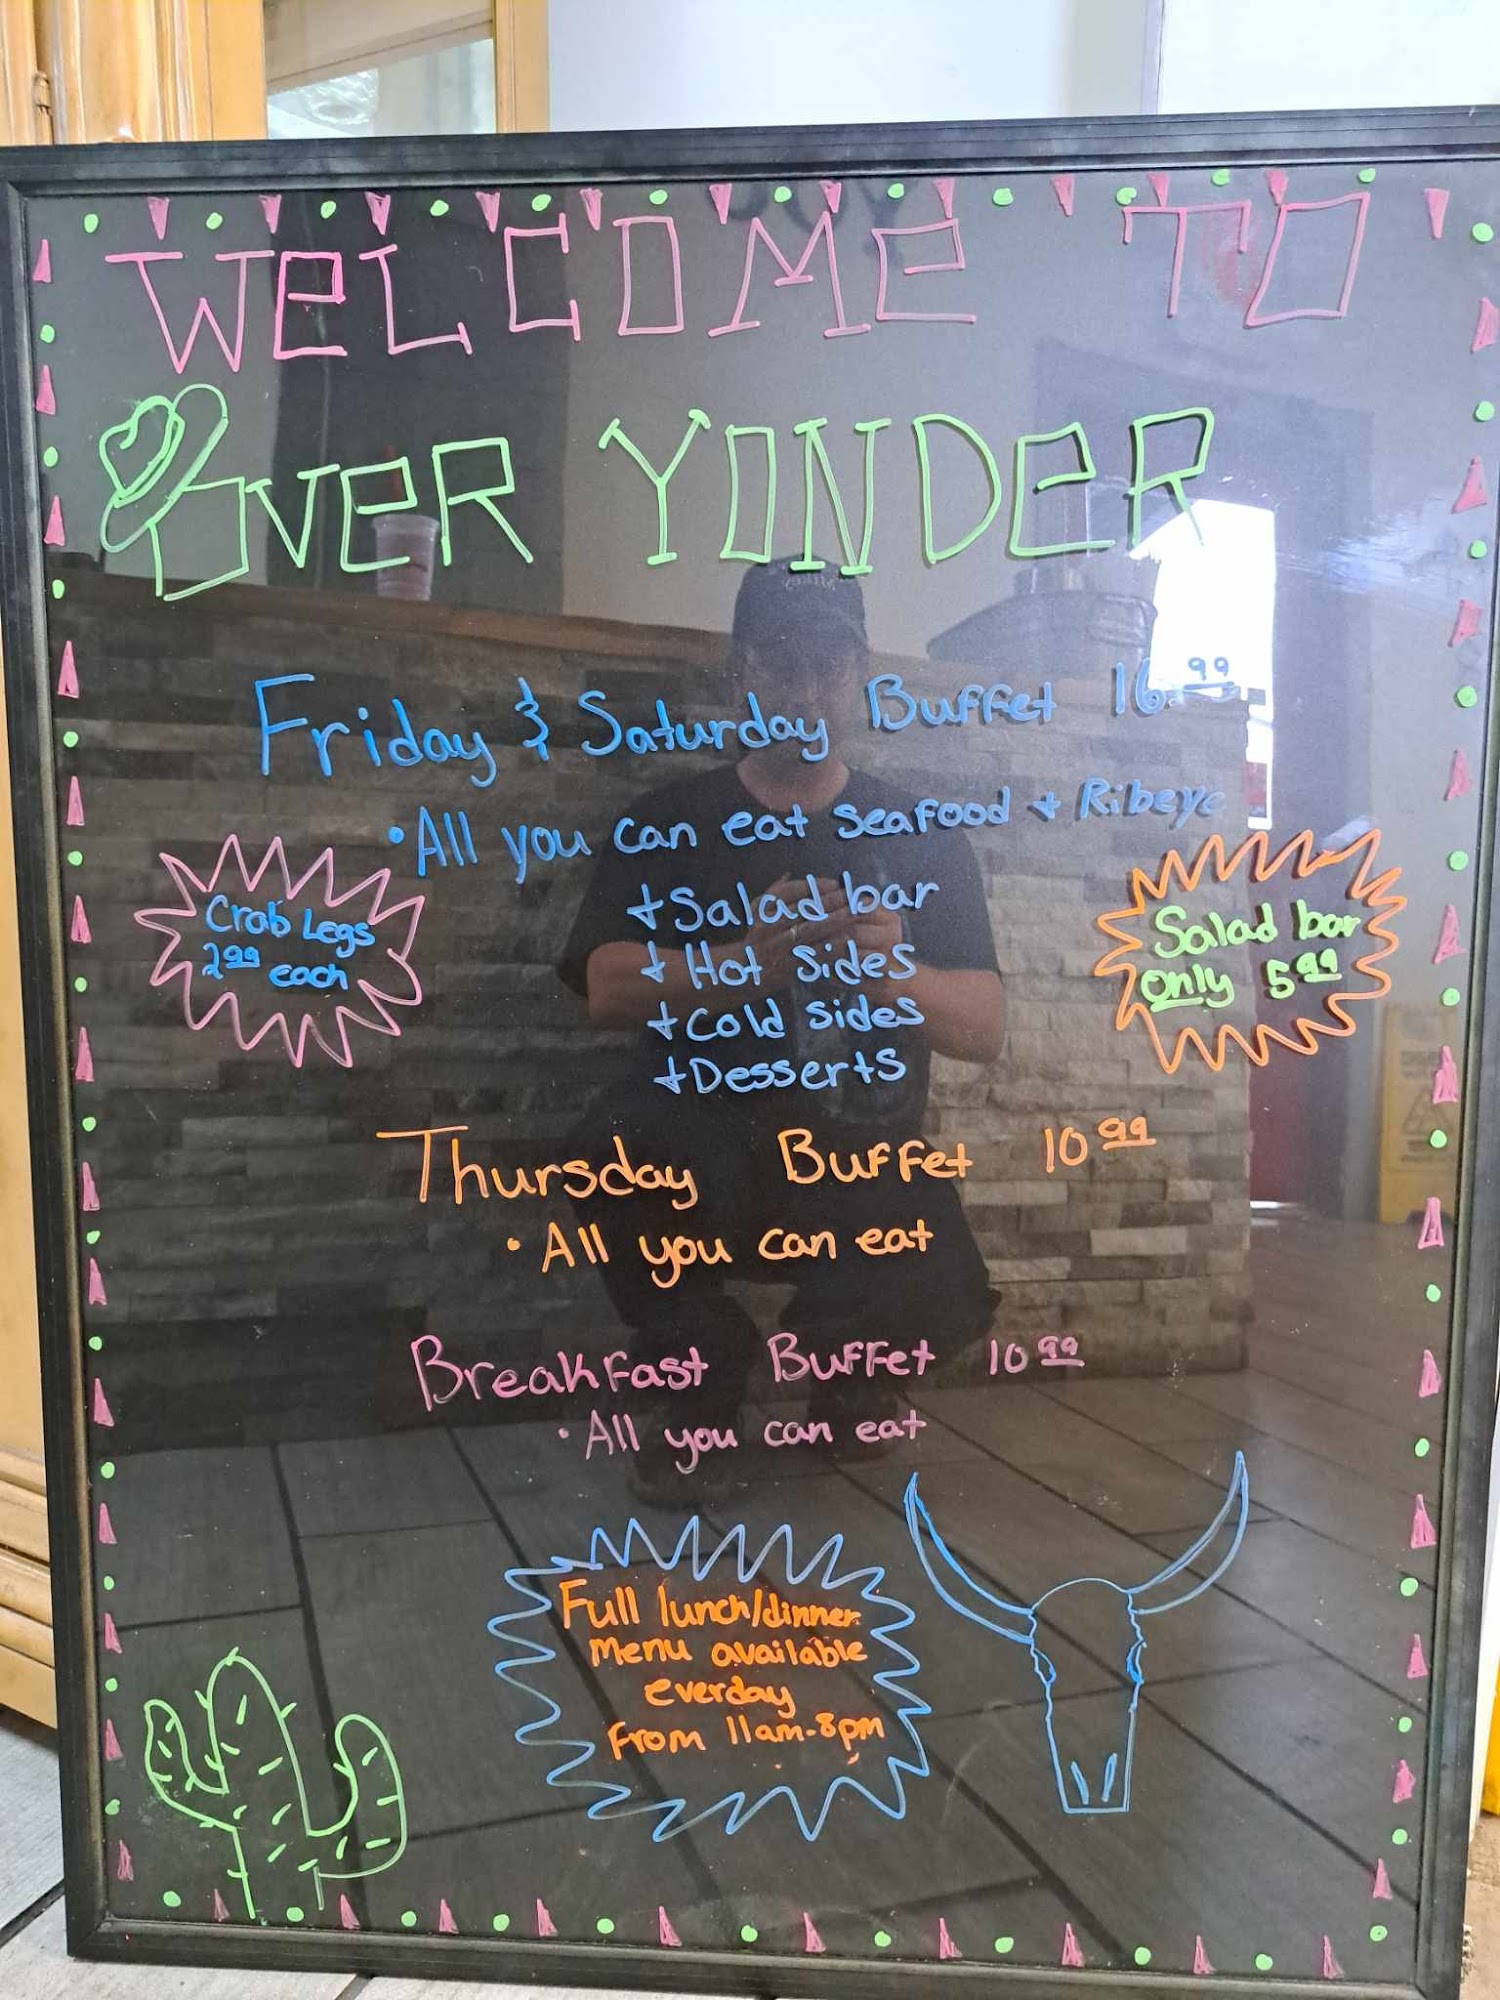 WeLCOMe TO
OVeR YONDeR
Friday & Saturday Buffet 16.99
• All you can eat seafood + Ribeye
+ Salad bar
+ Hot sides
+ Cold sides
+ Desserts
Crab Legs
2.99 each
Salad bar
only 5.99
Thursday Buffet 10.99
• All you can eat
Breakfast Buffet 10.99
• All you can eat
Full lunch/dinner
menu available
everday
from 11am-8pm